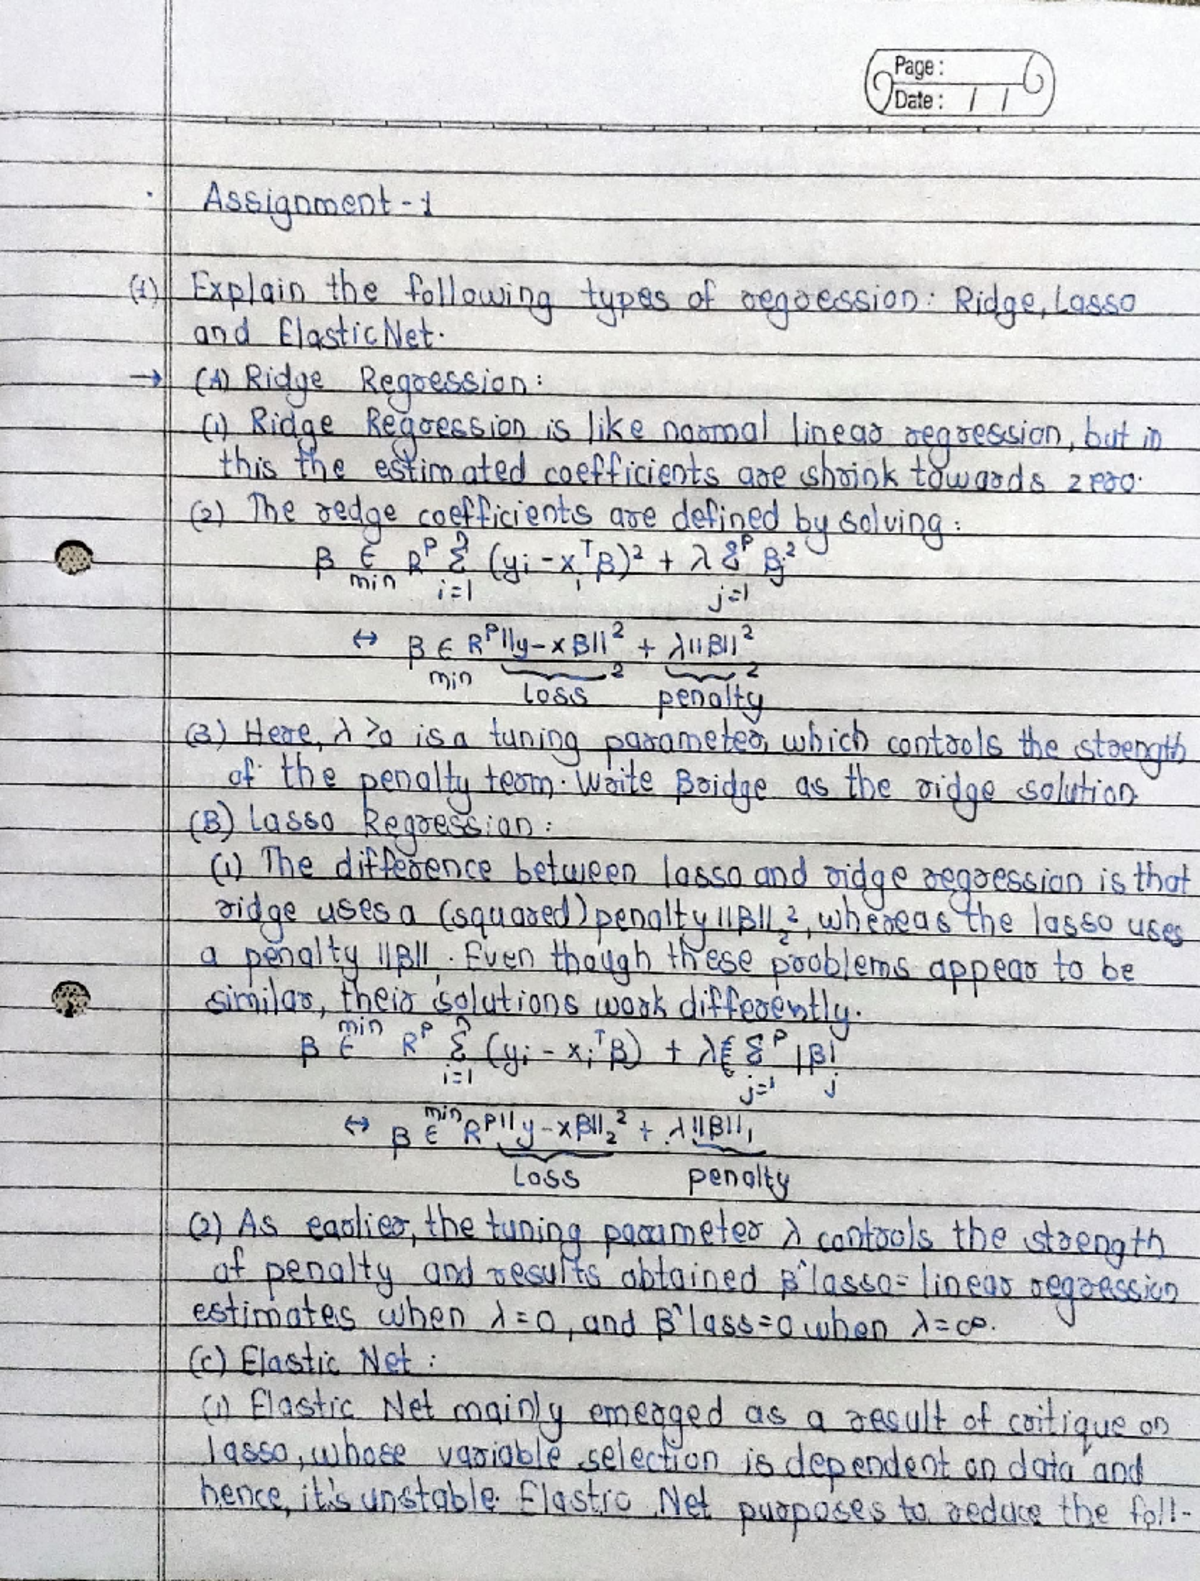 Page :
Date : / /
Assignment - 1
(1) Explain the following types of regression: Ridge, Lasso
and ElasticNet.
→ (A) Ridge Regression :
(1) Ridge Regression is like normal linear regression, but in
this the estimated coefficients are shrink towards zero.
(2) The redge coefficients are defined by solving :
β ∈ min R^P Σ^n i=1 (yi - xi^T β)^2 + λ Σ^P j=1 βj^2
↔ β ∈ min R^P ||y - xβ||_2^2 + λ||β||_2^2
Loss penalty
(3) Here, λ ≥0 is a tuning parameter, which controls the strength
of the penalty term. Write Bridge as the ridge solution
(B) Lasso Regression :
(1) The difference between lasso and ridge regression is that
ridge uses a (squared) penalty ||β||_2^2, whereas the lasso uses
a penalty ||β||_1. Even though these problems appear to be
similar, their solutions work differently.
β ∈ min R^P Σ^n i=1 (yi - xi^T β) + λ Σ^P j=1 |βj|
↔ β ∈ min R^P ||y - xβ||_2^2 + λ||β||_1
Loss penalty
(2) As earlier, the tuning parameter λ controls the strength
of penalty and results obtained β^lasso = linear regression
estimates when λ=0, and β^lass=0 when λ=∞.
(c) Elastic Net :
(1) Elastic Net mainly emerged as a result of critique on
lasso, whose variable selection is dependent on data and
hence, it's unstable. Elastic Net purposes to reduce the foll-